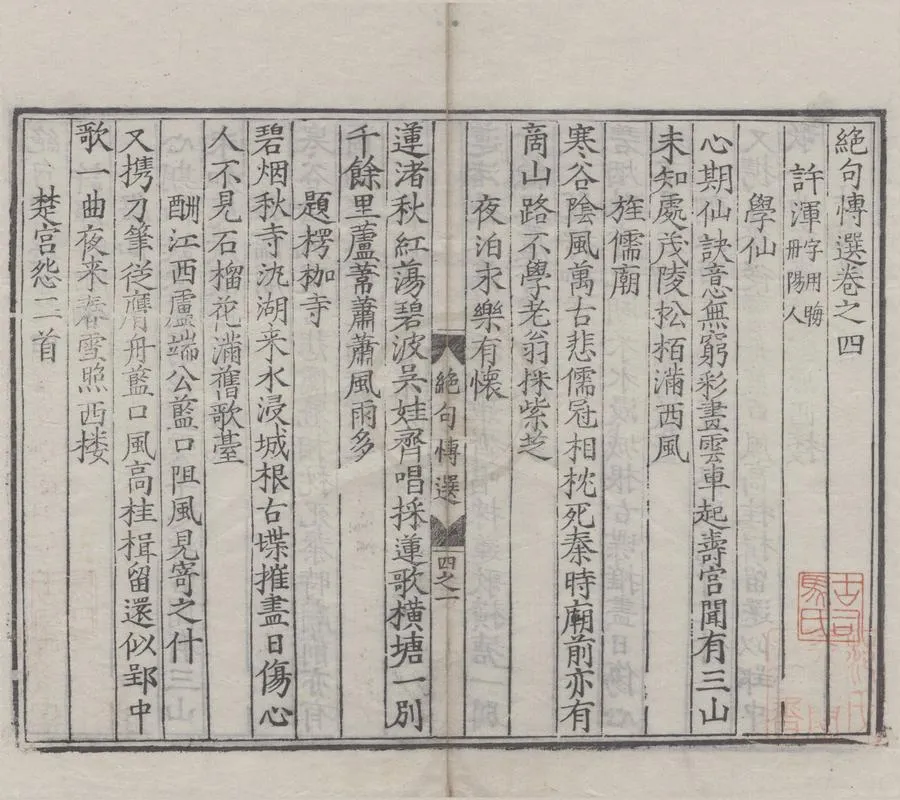 絶句愽選卷之四
許渾字用晦
丹陽人
學仙
心期仙訣意無窮彩畫雲車起壽宮聞有三山
未知處茂陵松栢滿西風
旌儒廟
寒谷陰風萬古悲儒冠相枕死秦時廟前亦有
商山路不學老翁採紫芝
夜泊永樂有懷
蓮渚秋紅蕩碧波吳娃齊唱採蓮歌橫塘一別
千餘里蘆葦蕭蕭風雨多
絕句愽選
四之一
題楞枷寺
碧烟秋寺汎湖来水浸城根古堞摧盡日傷心
人不見石榴花滿舊歌臺
酬江西盧端公藍口阻風見寄之什
又携刀筆從膺舟藍口風高桂楫留還似郢中
歌一曲夜来春雪照西楼
楚宮怨二首